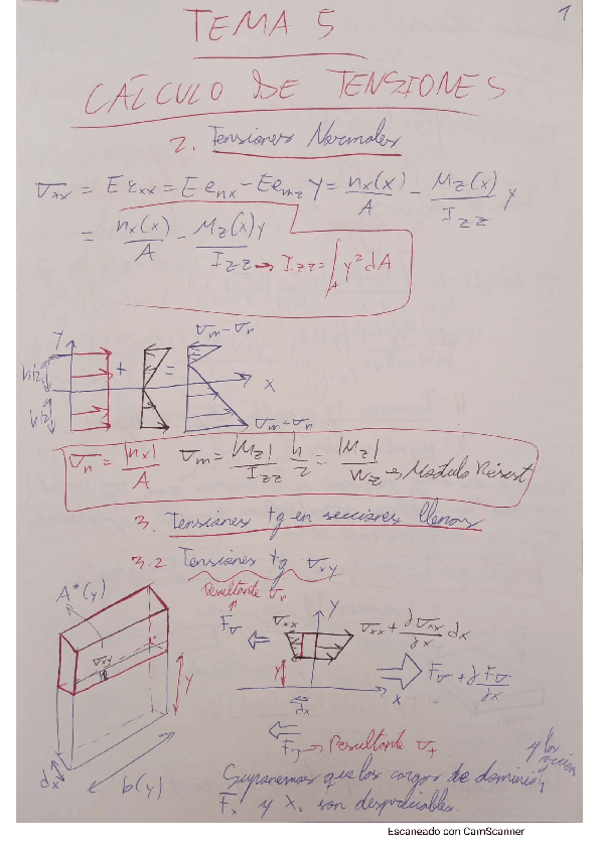 1
TEMA 5
CÁLCULO DE TENSIONES
2. Tensiones Normales
σxx = E εxx = E enx - E emz y = nx(x)/A - Mz(x)/Izz y
= nx(x)/A - Mz(x)y/Izz → Izz = ∫A y² dA
y
σm - σn
h/2
+
=
x
h/2
σm + σn
σn = |nx|/A σm = |Mz|/Izz h/2 = |Mz|/Wz → Módulo Resist
3. Tensiones tg en secciones llenas
3.2 Tensiones tg σxy
A*(y)
Resultante
Fσ
σxx
y
σxx + ∂σxx/∂x dx
σxy
y
y
Fσ + ∂Fσ/∂x
dx
x
dx
b(y)
→ Resultante
Suponemos que las cargas de dominio y los
Fx y X, son despreciables.
Escaneado con CamScanner